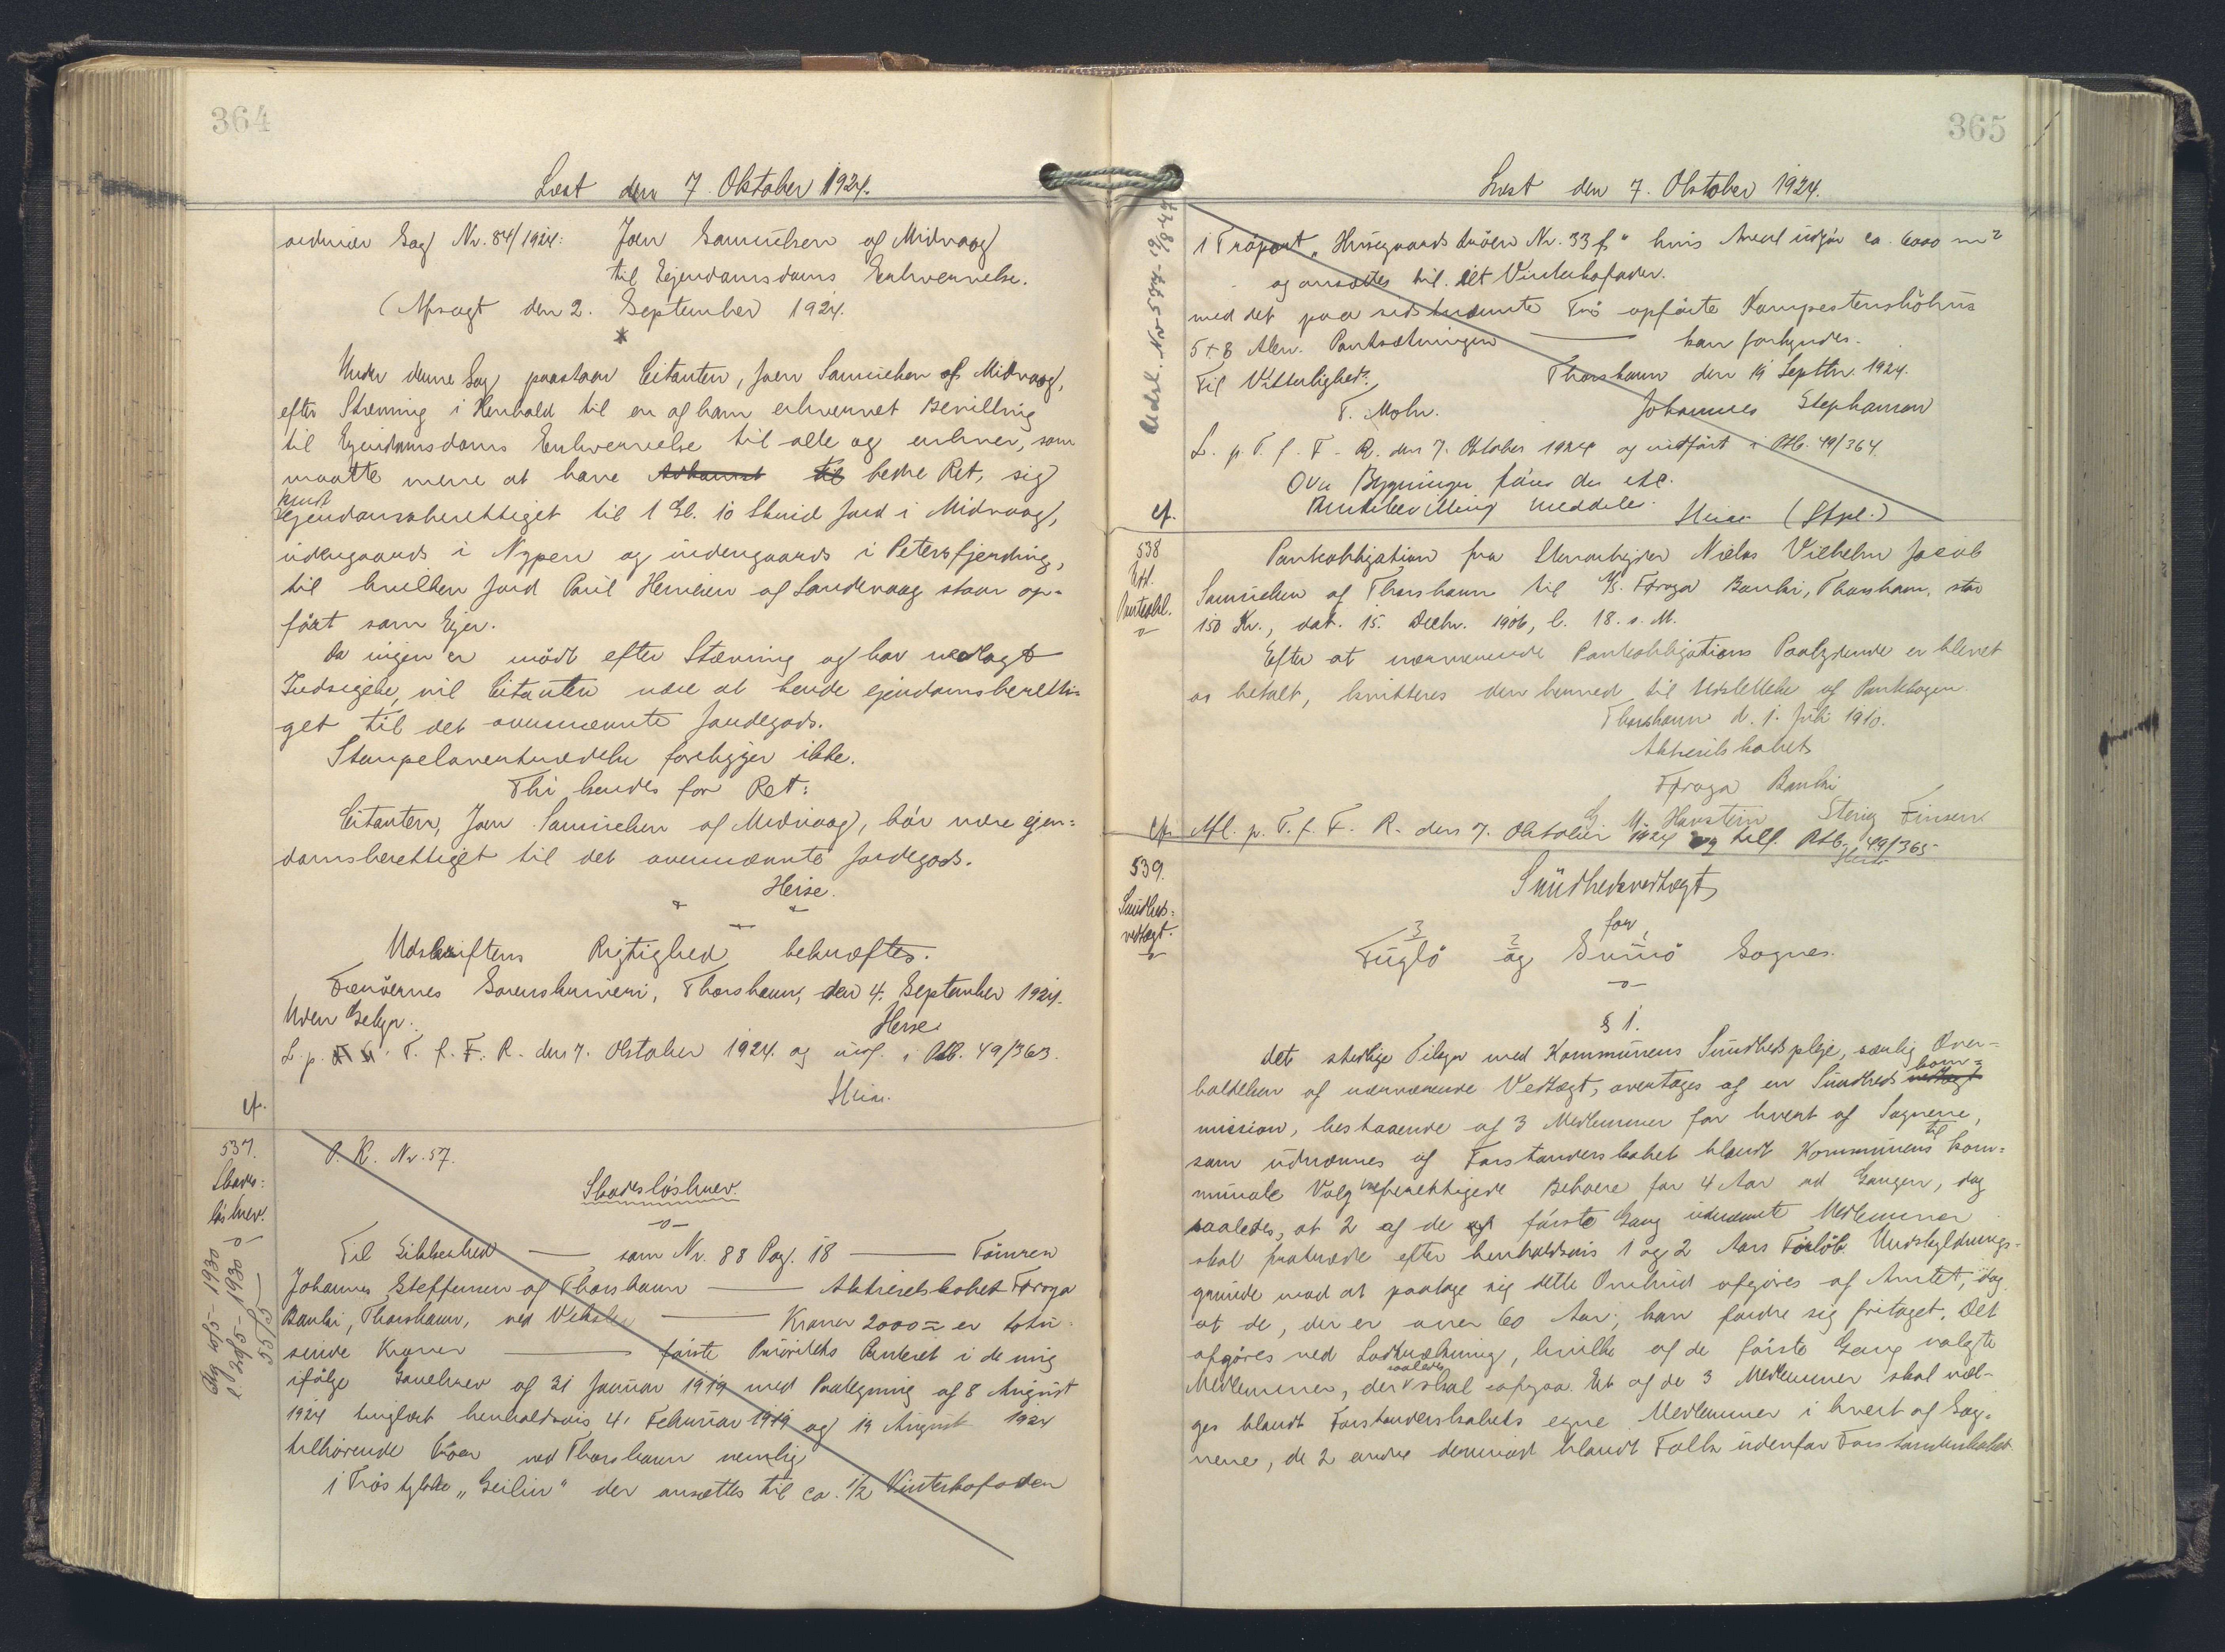 364
Læst den 7. Oktober 1924.
ordinær Sag Nr. 84/1924: Joen Samuelsen af Midvaag
til Ejendomsdoms Erhvervelse.
(Afsagt den 2. September 1924.
Under denne Sag paastaar Citanten, Joen Samuelsen af Midvaag,
efter Stævning i Henhold til en af ham erhvervet Bevilling
til Ejendomsdoms Erhvervelse til alle og enhver, som
maatte mene at have Adkomst til bedre Ret, sig
kendt
ejendomsberettiget til 1 Gl. 10 Skind Jord i Midvaag,
udengaards i Nypen og indengaards i Petersfjerding,
til hvilken Jord Poul Heinesen af Sandevaag staar op-
ført som Ejer.
Da ingen er mødt efter Stævning og har nedlagt
Indsigelse, vil Citanten være at kende ejendomsberetti-
get til det ovennævnte Jordegods.
Stempelovertrædelse foreligger ikke.
Thi kendes for Ret:
Citanten, Joen Samuelsen af Midvaag, bør være ejen-
domsberettiget til det ovennævnte Jordegods.
Heise.
Udskriftens Rigtighed bekræftes.
Færøernes Sorenskriveri, Thorshavn, den 4. September 1924.
Uden Gebyr. Heise
L. p. T. f. F. R. den 7. Oktober 1924. og indf. i Ptb. 49/363.
Heise.
cf.
537.
Skades-
løsbrev.
O. R. Nr. 57.
Skadesløsbrev.
Til Sikkerhed — som Nr. 88 Pag. 18 — Tømrer
Johannes Steffensen af Thorshavn — Aktieselskabet Føroya
Banki, Thorshavn, ved Veksler — Kroner 2000 = er totu-
sinde Kroner — første Prioritets Panteret i de mig
ifølge Gavebrev af 31 Januar 1919 med Paategning af 8 August
1924 tinglæst henholdsvis 4. Februar 1919 og 19 August 1924
tilhørende Trøer ved Thorshavn nemlig
i Trøstykke „Geilin" der ansættes til ca. 1/2 Vinterkofoder
365
Læst den 7. Oktober 1924.
i Trøpart „Husegaards trøen Nr. 33 f" hvis Areal udgør ca. 6000 m²
og ansættes til et Vinterkofoder.
med det paa sidstnævnte Trø opførte Kampestenshøhus
5 x 8 Alen. Pantsætningen — kan forkyndes.
Til Vitterlighed: Thorshavn den 19 Septbr. 1924.
T. Mohr. Johannes Stephansen
L. p. T. f. F. R. den 7. Oktober 1924 og indført i Ptb. 49/364.
Over Bygninger føres der etc.
meddeles. Heise (Stpl.)
cf.
538
Pantobl.
Pantobligation fra Stenarbejder Niels Vilhelm Jacob
Samuelsen af Thorshavn til A/S. Føroya Banki, Thorshavn, stor
150 Kr., dat. 15. Decbr. 1906, l. 18. s. M.
Efter at nærværende Pantobligations Paalydende er blevet
os betalt, kvitteres den herved til Udslettelse af Pantebogen.
Thorshavn d. 1. Juli 1910.
Aktieselskabet
Føroya Banki
Finsen
cf. Afl. p. T. f. F. R. den 7. Oktober 1924 og tilf. Ptb. 49/365
Heise
539.
Sundheds-
vedtægt.
Sundhedsvedtægt
for
3 2 1
Fuglø og Svinø Sogne.
§ 1.
Det stedlige Tilsyn med Kommunens Sundhedspleje, særlig Over-
holdelsen af nærværende Vedtægt, overtages af en Sundheds vedtægt kom-
mission, bestaaende af 3 Medlemmer for hvert af Sognene,
som udnævnes af Forstanderskabet blandt Kommunens til kom-
munale Valg valgberettigede Beboere for 4 Aar ad Gangen, dog
saaledes, at 2 af de første Gang udnævnte Medlemmer
skal fratræde efter henholdsvis 1 og 2 Aars Forløb. Undskyldnings-
grunde mod at paatage sig dette Ombud afgøres af Amtet, dog
at de, der er over 60 Aar, kan fordre sig fritaget. Det
afgøres ved Lodtrækning, hvilke af de første Gang valgte
Medlemmer, der saaledes skal afgaa. Et af de 3 Medlemmer skal væl-
ges blandt Forstanderskabets egne Medlemmer i hvert af Sog-
nene, de 2 andre derimod blandt Folk udenfor Forstanderskabet